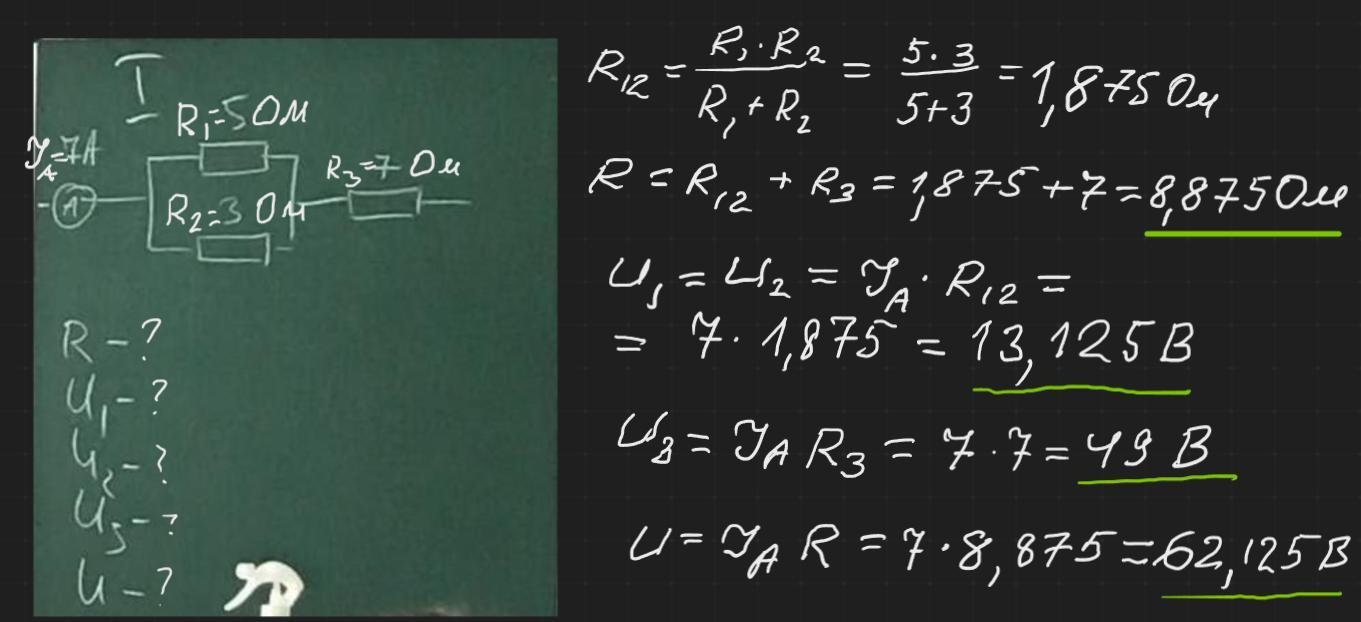 I
R₁=5 Ом
I_A=7А
R₃=7 Ом
A
R₂=3 Ом
R - ?
U₁ - ?
U₂ - ?
U₃ - ?
U - ?
R₁₂ = (R₁ · R₂)/(R₁ + R₂) = (5 · 3)/(5+3) = 1,875 Ом
R = R₁₂ + R₃ = 1,875 + 7 = 8,875 Ом
U₁ = U₂ = I_A · R₁₂ =
= 7 · 1,875 = 13,125 В
U₃ = I_A R₃ = 7 · 7 = 49 В
U = I_A R = 7 · 8,875 = 62,125 В